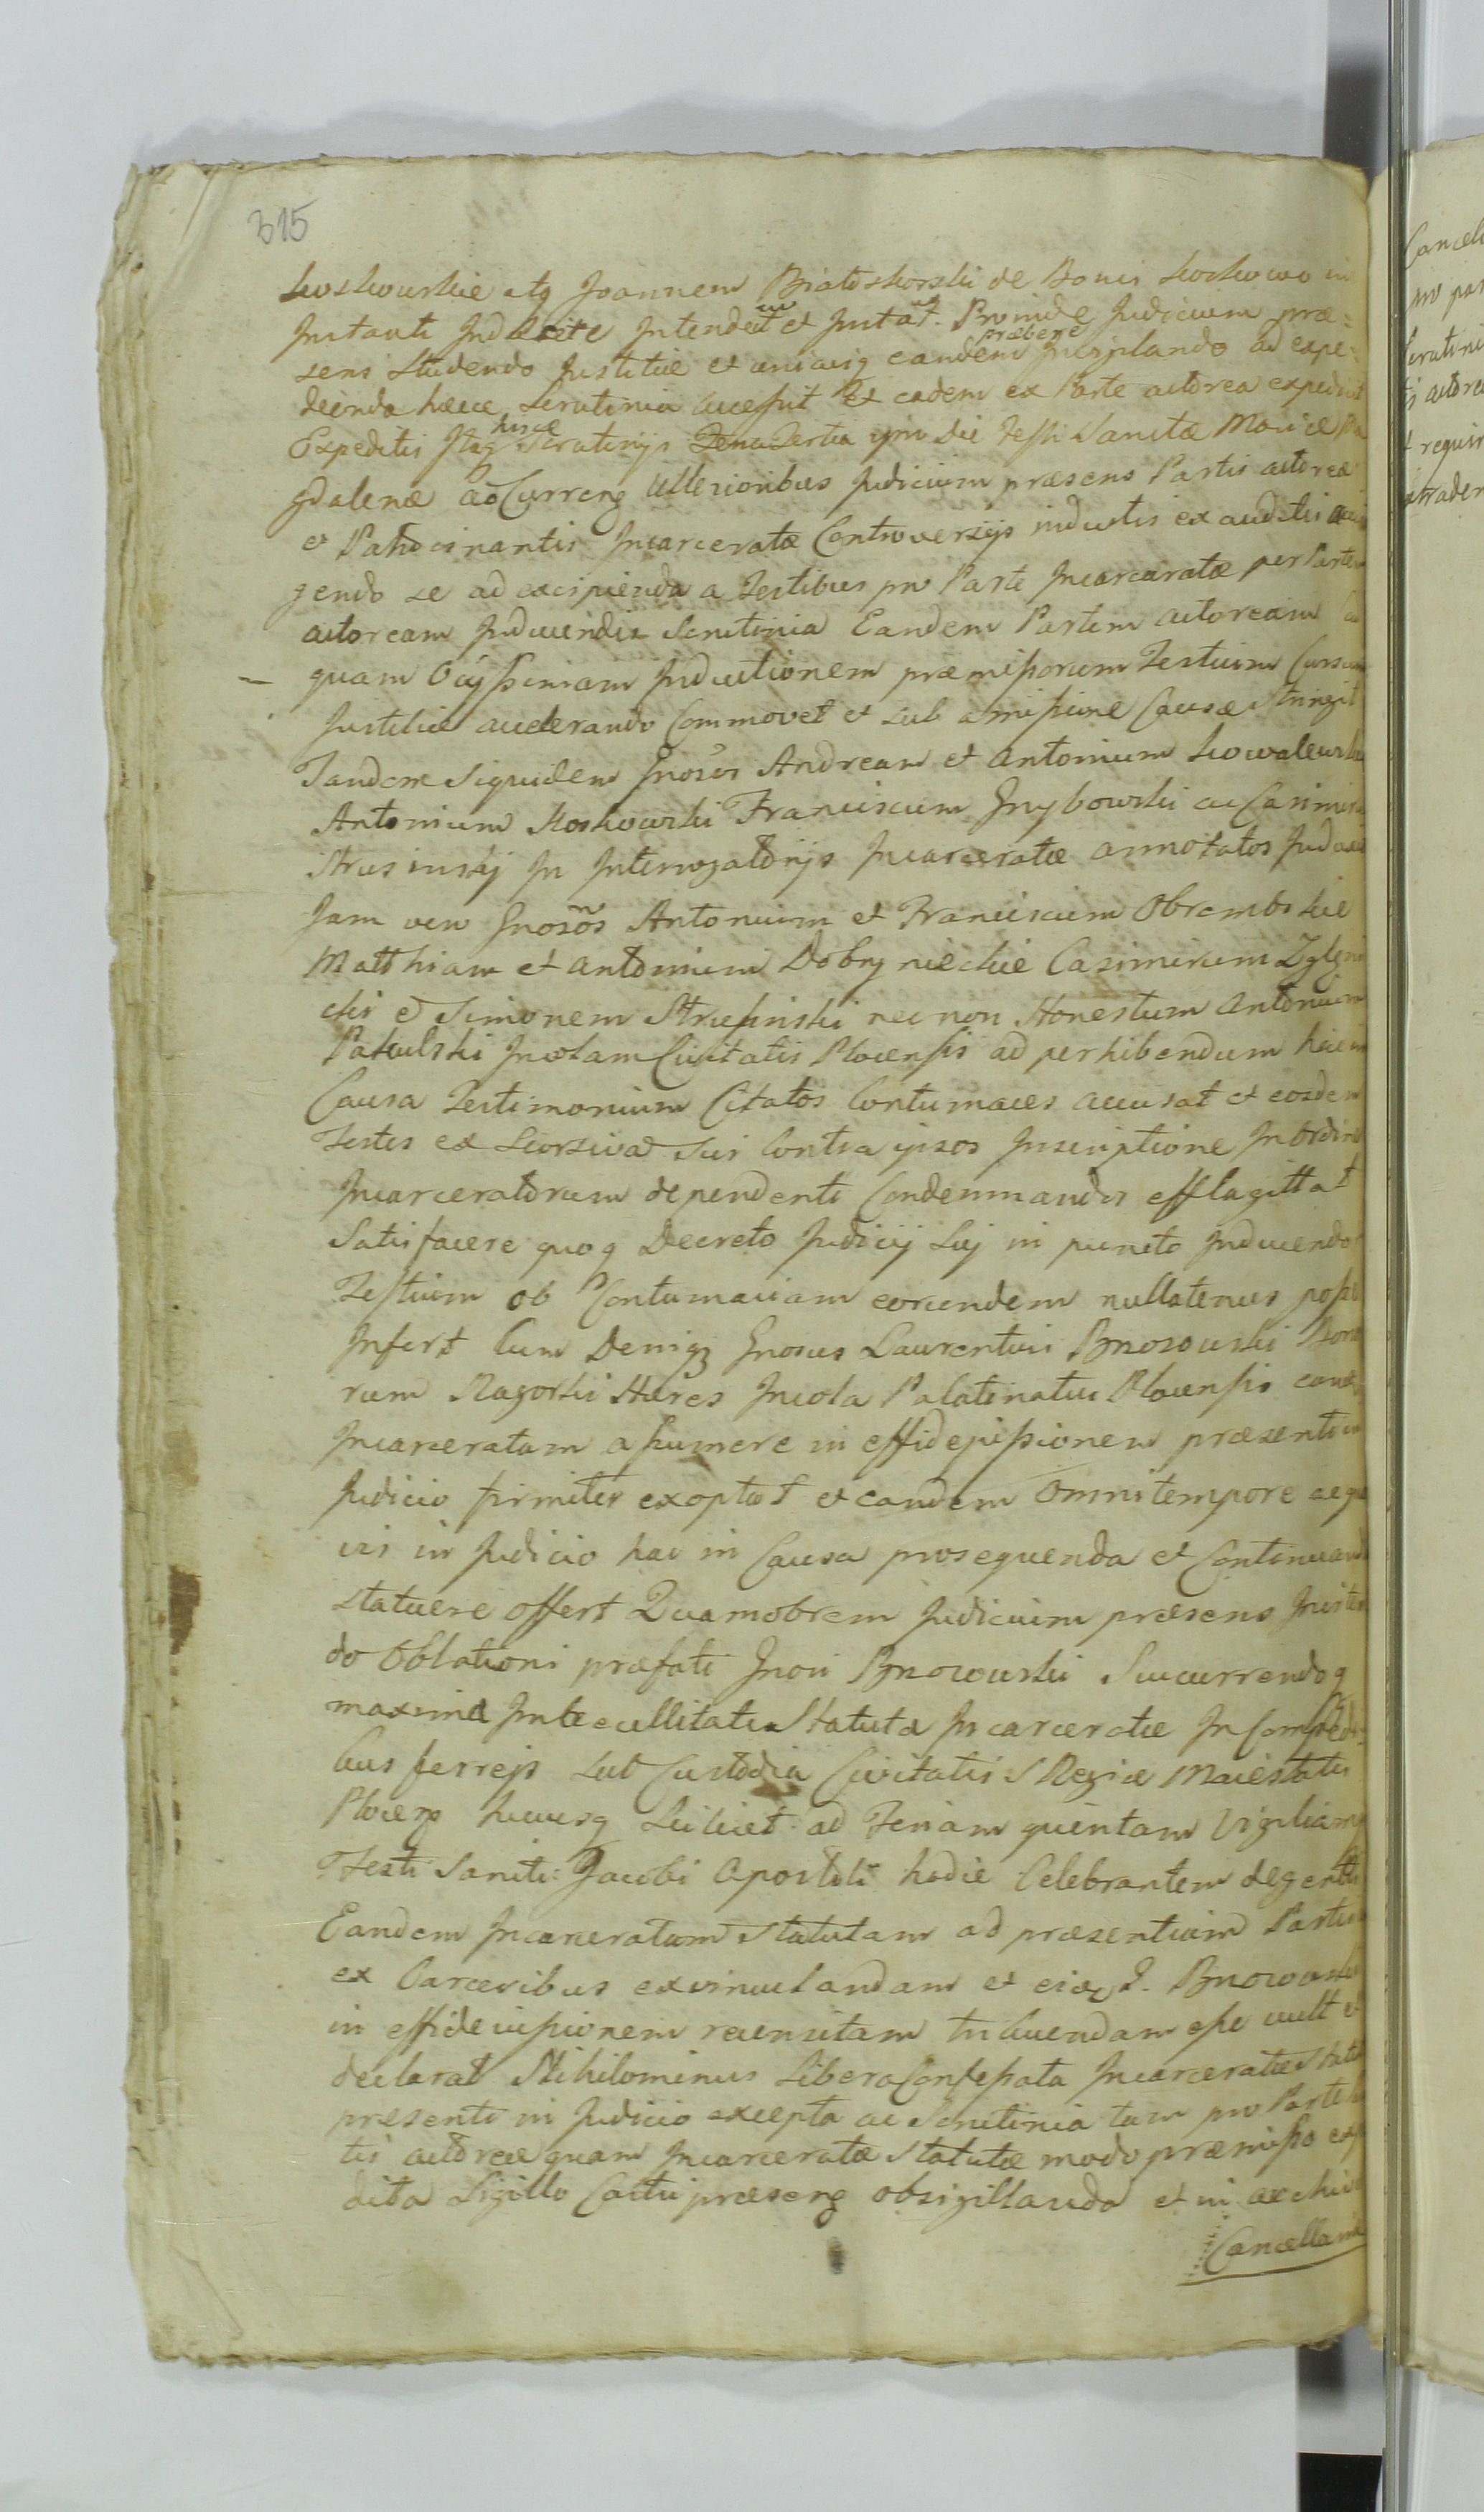 315
Koskowskie atq Joannem Białoskorski de Bonis Koskowo in
Instanti Inducite Intendeut et Instat. Proinde Judicium præ=
sens studendo Justitiæ et unicuiq eandem præbere ad expe=
dienda hæcce Scrutinia accessit Et eadem ex Parte actorea expedivit
Expeditis Itaq hisce Scrutinijs Feria Tertia ipso Die Festi Sanctæ Mariæ Ma
gdalenæ Currenq Ulterioribus Judicium præsens Partis actoreæ
et Patrocinantis Incarceratæ Controversijs inductis ex auditis
gendo se ad excipienda a Testibus pro Parte Incarceratæ per Partem
actoream Inducendis Scrutinia Eandem Partem actoream ad
quam Ocyssimam Inductionem præmissorum Testium Cursum
Justitiæ accelerando Commovet et sub amissione Causæ Stringit
Tandem Siquidem Gnosos Andream et Antonium Kowalewskie
Antonium Koskowski Franciscum Grybowski ac Casimirum
Strusinskij In Interrogatorijs Incarceratæ annotatos
Jam vero Gnosos Antonium et Franciscum Obrembskie
Matthiam et Antonium Dobrzniechie Casimirum
cki et Simonem Strusinski nec non Honestum Antonium
Pakulski Incolam Civitatis Plocensis ad perhibendum hac in
Causa Testimonium Citatos Contumaces accusat et eosdem
Testes ex Seorsiva Sui Contra ipsos Inscriptione In Ordine
Incarceratorum dependenti Condemnandos efflagittat
Satisfacere quoq Decreto Judicij Sui in puncto Inducendo
Testium ob Contumaciam eorundem nullatenus posse
Infert Cum Deniq Gnosus Laurentius Brzozowski Bono
rum Hæres Incola Palatinatus Plocensis eand
Incarceratam assumere in effidejussionem præsenti in
Judicio firmiter exoptat et eandem omni tempore
iri in Judicio hac in Causa prosequenda et Continuand
statuere offert Quamobrem Judicium præsens
do Oblationi præfati Gnosi Brzozowski Succurrendoq
maximæ Imbecillitati Statutæ Incarceratæ In Compedi=
bus ferreis sub Custodia Civitatis S Regiæ Maiestatis
Plocens hucusq Scilicet ad Feriam quintam Vigiliam
Festi Sancti Jacobi Apostoli hodie Celebrantem degentis
Eandem Incarceratam Statutam ad præsentiam Partium
ex Carceribus exvinculandam et eidem G. Brzozowski
in effidejussionem recensitam tribuendam esse vult et
declarat Nihilominus Libera Confessata Incarceratæ Statutæ
præsenti in Judicio excepta ac Scrutinia tam pro Parte
tis actoreæ quam Incarceratæ Statutæ modo præmisso exp
dita Sigillo Castri præsenq obsigillanda et in archivo
Cancellariæ